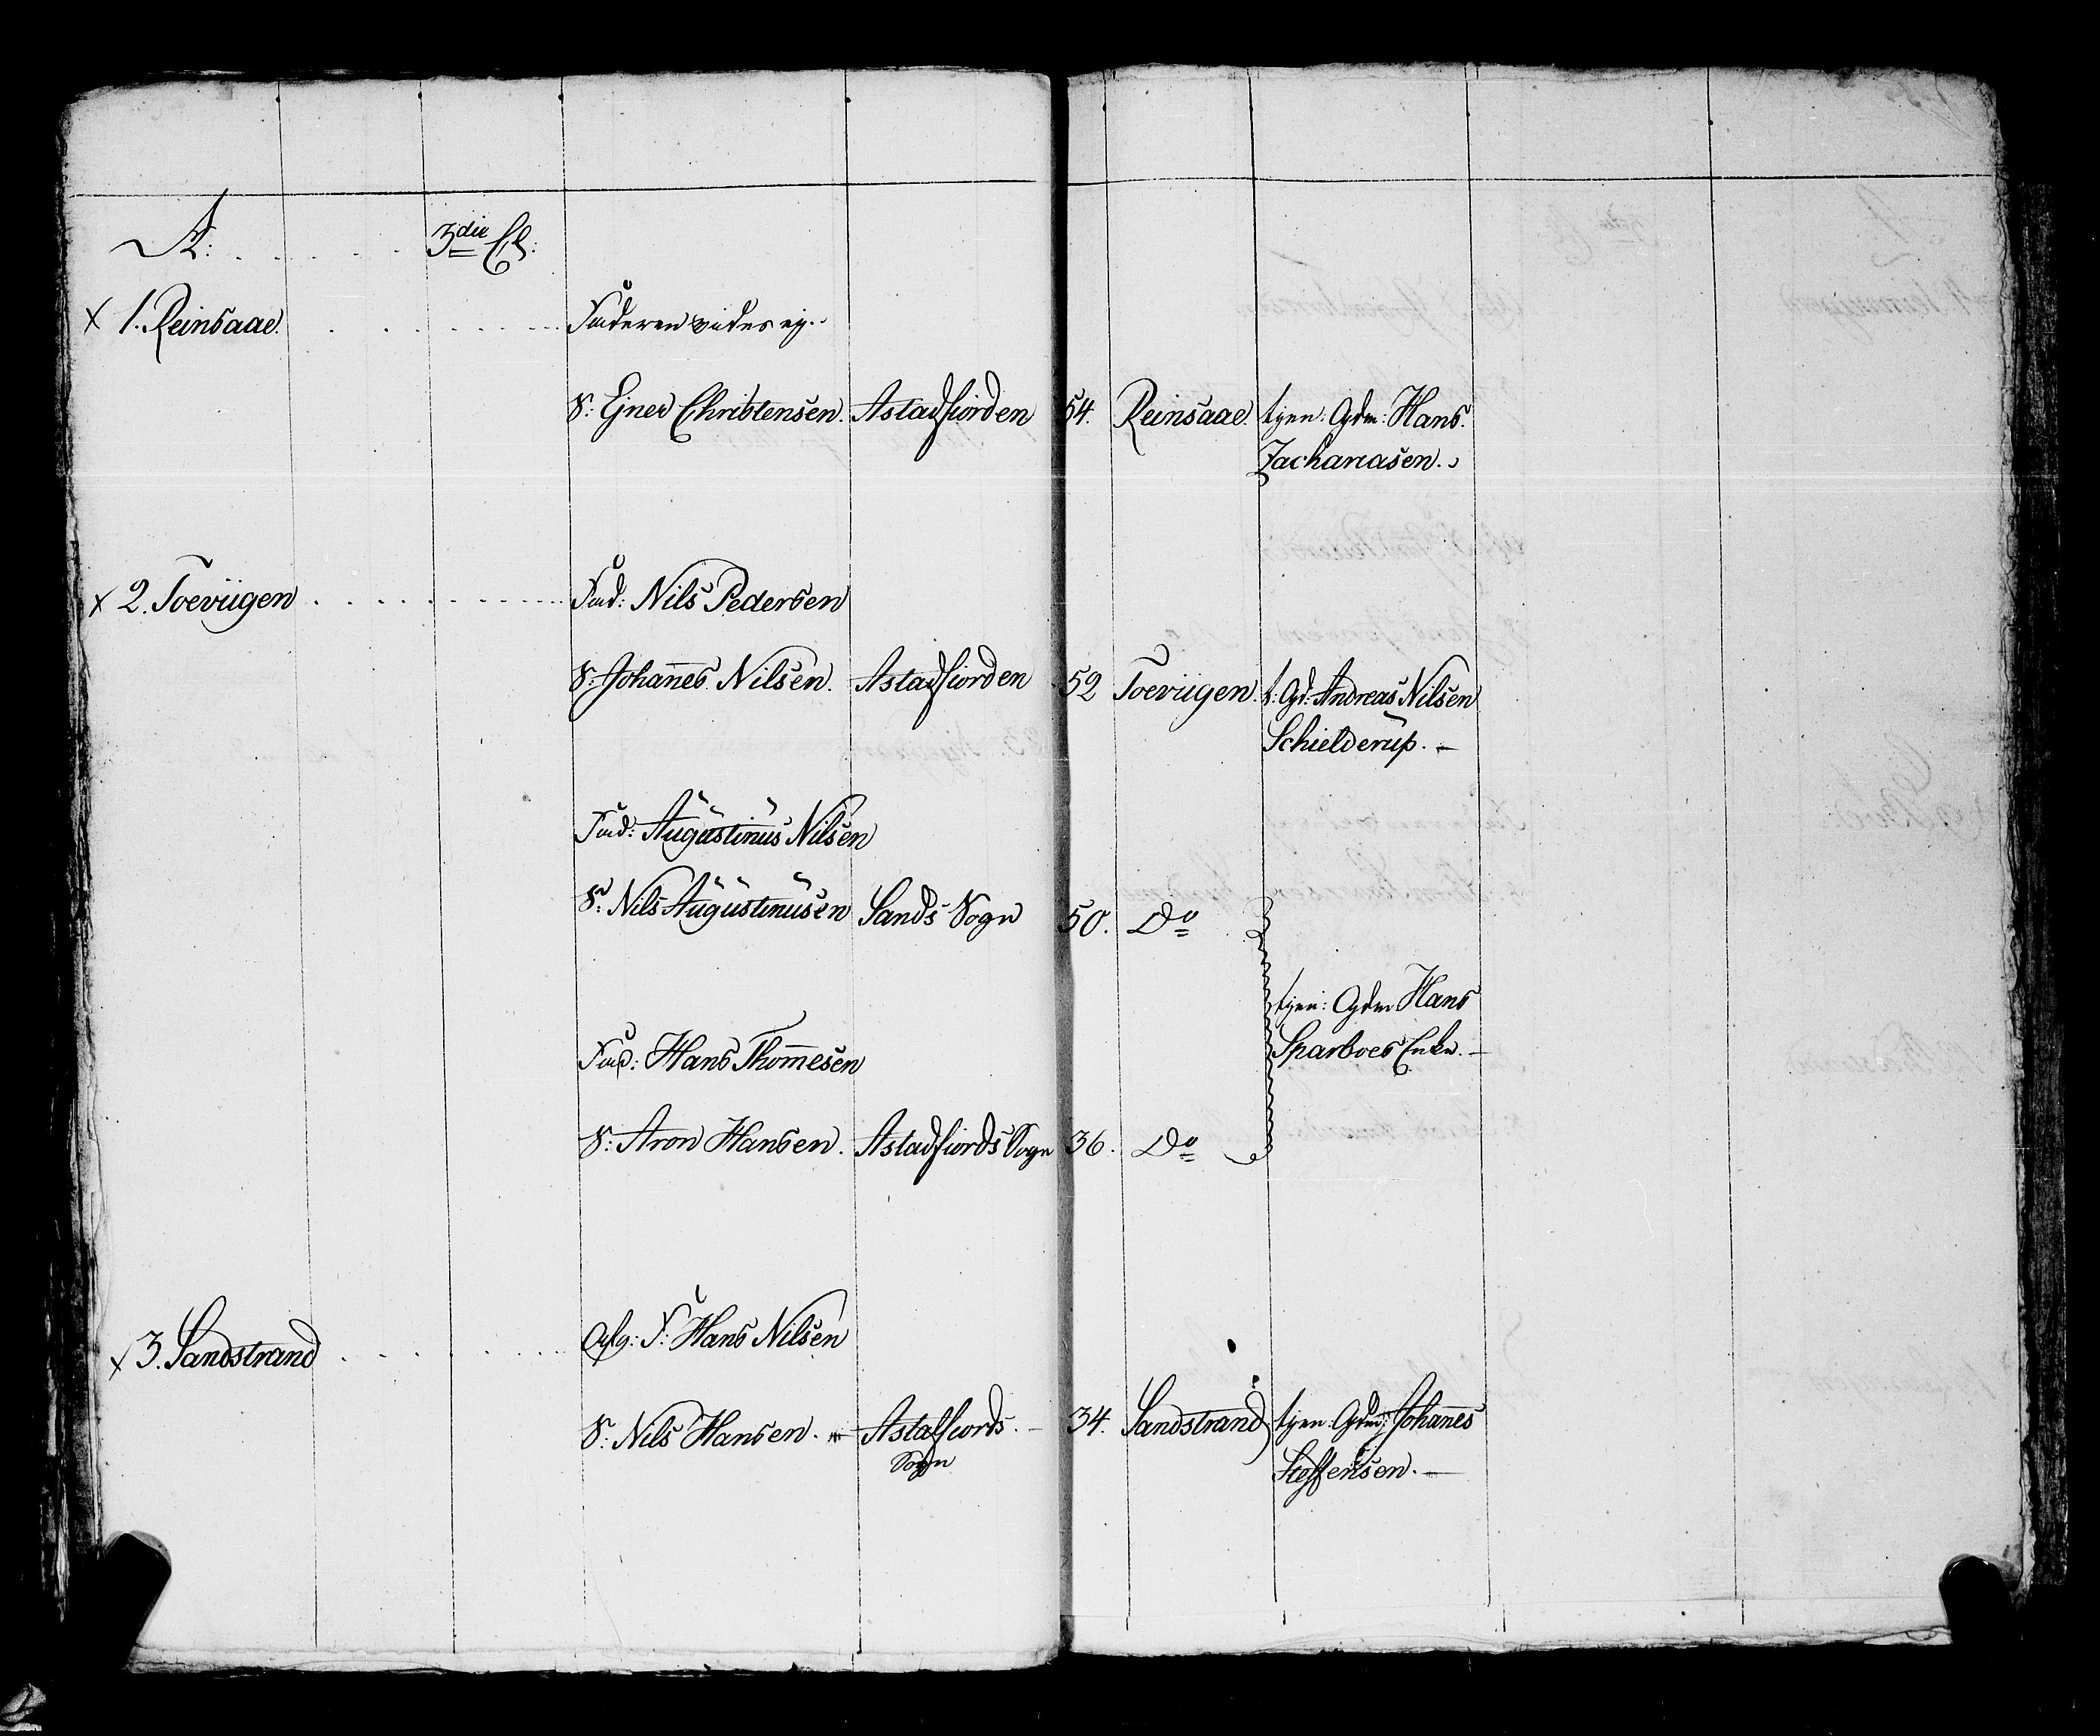 A: . . . . . 3die Cl:
x 1. Reinsaae. . . . . . . . . Faderen vides ej.
S: Ejner Christensen. Astadfiorden 54. Reinsaae. tjen: Gdm: Hans
Zachariasen.
x 2. Toeviigen . . . . . . . . . Fad: Nils Pedersen
S: Johañes Nilsen. Astadfiorden 52 Toeviigen. t: Gd: Andreas Nilsen
Schielderup. —
Fad: Augustinus Nilsen
S: Nils Augustinusen Sands Sogn 50. Do
tjen: Gdm Hans
Sparboes Enke. —
Fad: Hans Thom̄esen
S: Aron Hansen. Astadfiords Sogn 36. Do
x 3. Sandstrand . . . . . . Afg: F: Hans Nilsen
S: Nils Hansen. — Astafiords. — 34. Sandstrand tjen: Gdm: Johañes
Sogn
Steffensen. —